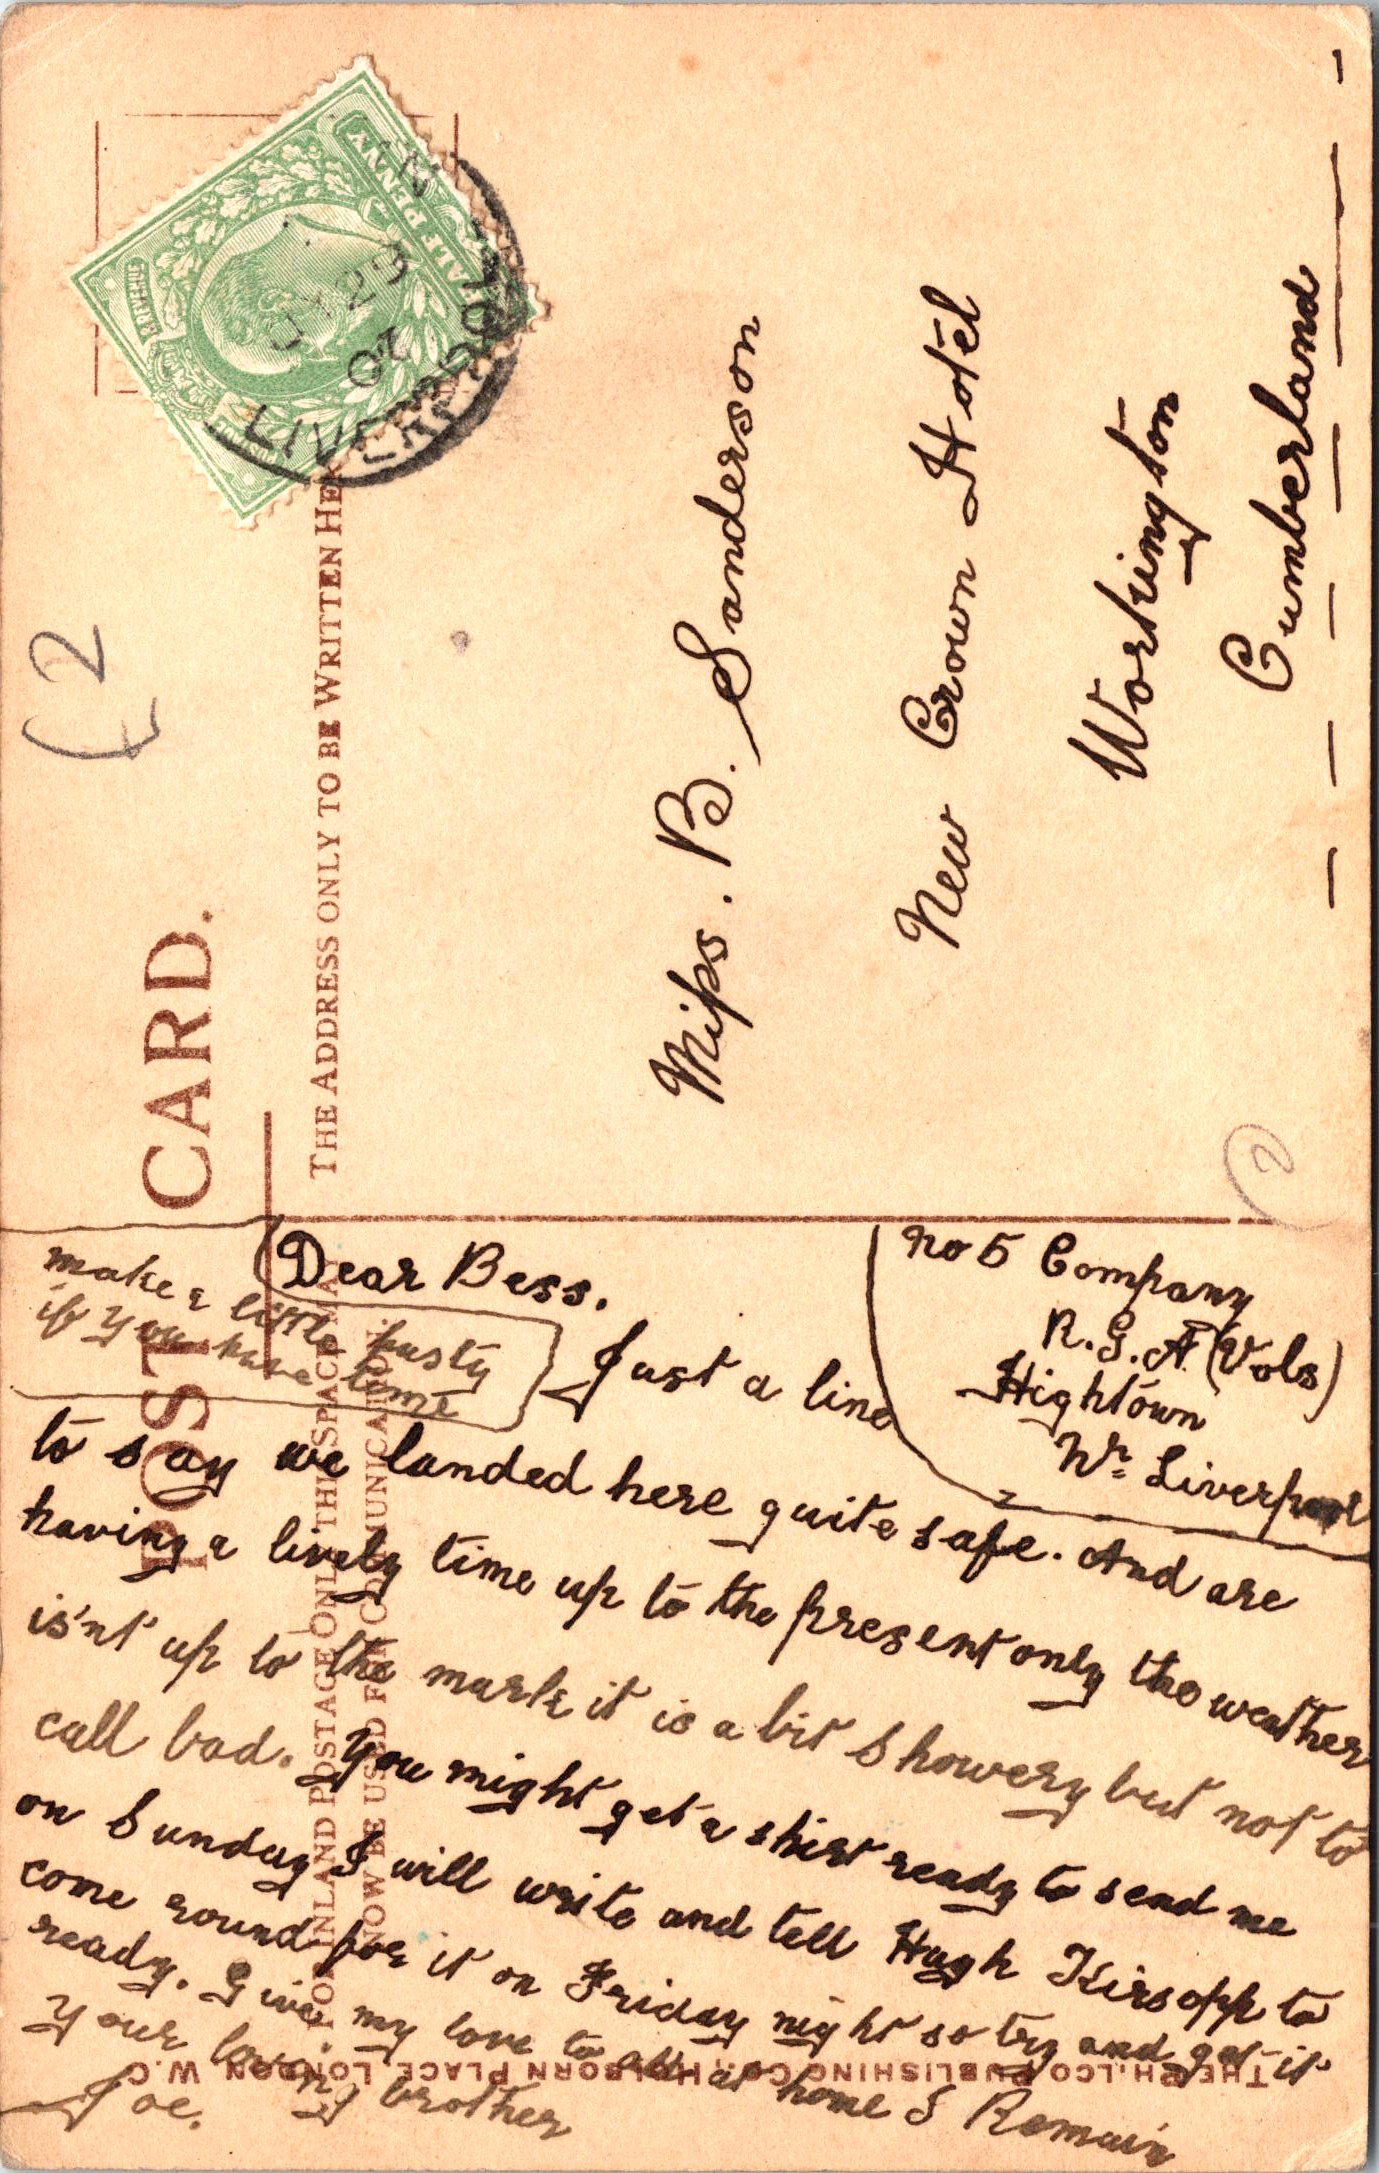 POST CARD.
FOR INLAND POSTAGE ONLY THIS SPACE MAY
NOW BE USED FOR COMMUNICATION.
THE ADDRESS ONLY TO BE WRITTEN HERE
HALFPENNY
LIVERPOOL
07
£2
Miss. B. Sanderson
New Crown Hotel
Workington
Cumberland
2
No 5 Company
R.G.A. (Vols)
Hightown
Nr. Liverpool
Dear Bess.
Just a line
to say we landed here quite safe. And are
having a lively time up to the present only the weather
is'nt up to the mark it is a bit showery but not to
call bad. You might get a shirt ready to send me
on Sunday I will write and tell Hugh Kirsopp to
come round for it on Friday night so try and get it
ready. Give my love to all at home I Remain
Your loving brother
Joe.
make a little pasty
if you have time
THE PHILCO PUBLISHING CO., HOLBORN PLACE, LONDON W.C.